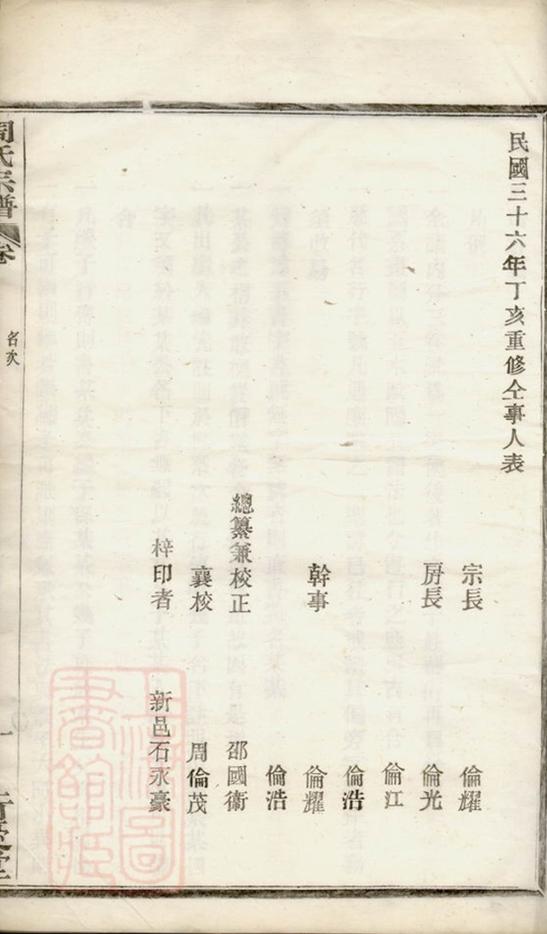 民國三十六年丁亥重修仝事人表
宗長 倫耀
房長 倫光
倫江
倫浩
幹事 倫耀
倫浩
總纂兼校正 邵國衛
襄校 周倫茂
梓印者 新邑石永豪
周氏宗譜 卷
名次
一
上海圖書館藏